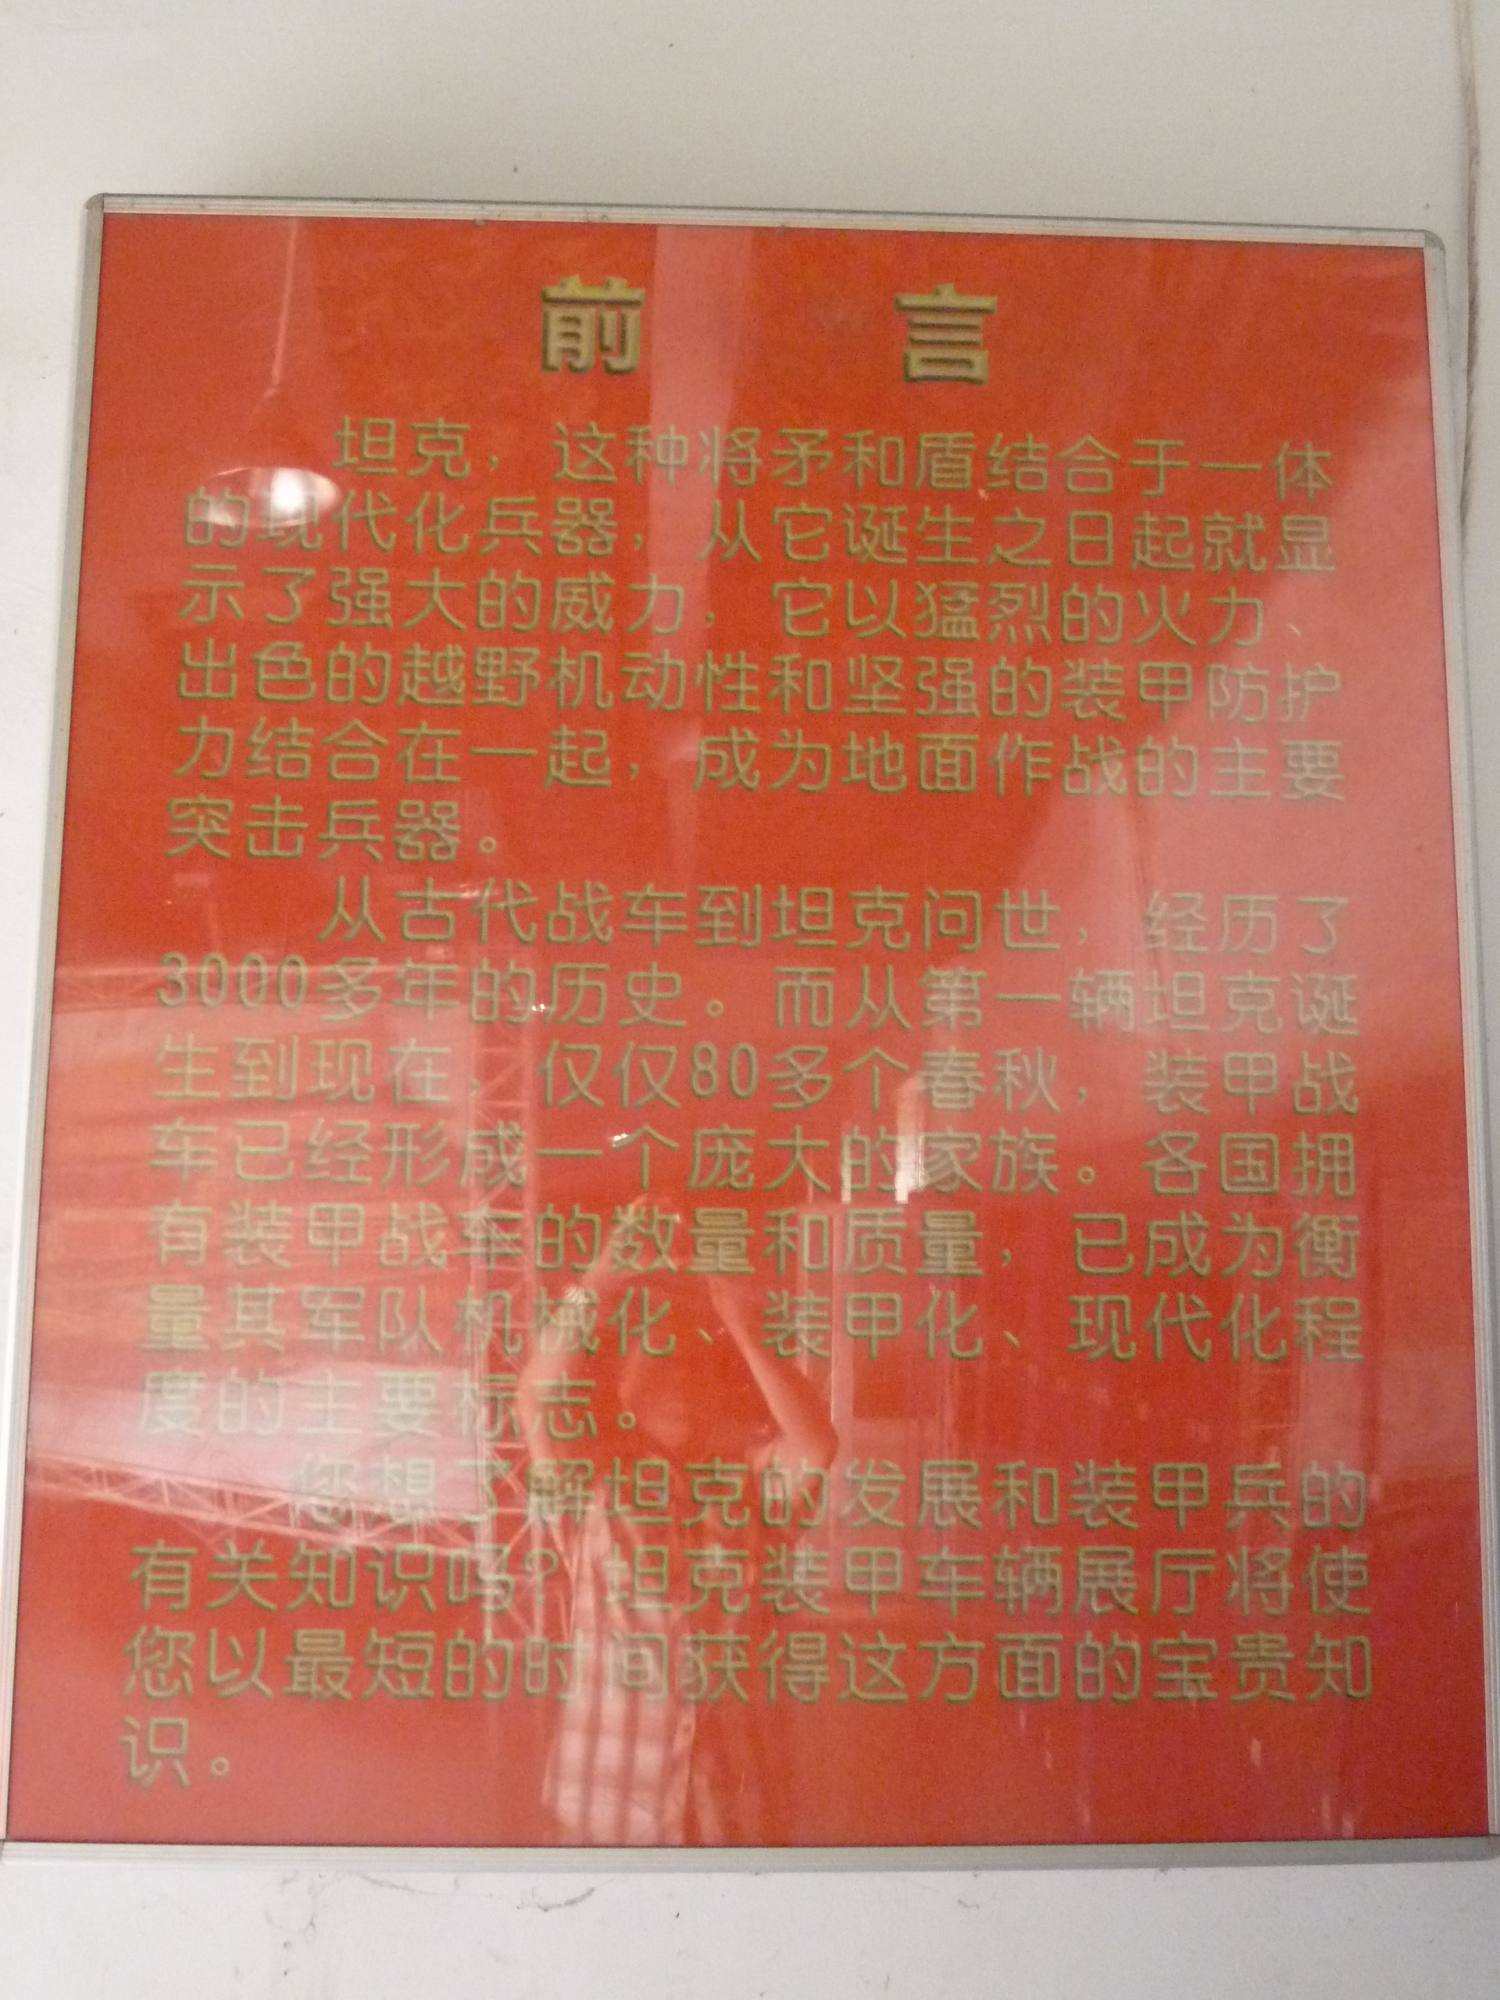 前 言
坦克，这种将矛和盾结合于一体
的现代化兵器，从它诞生之日起就显
示了强大的威力，它以猛烈的火力、
出色的越野机动性和坚强的装甲防护
力结合在一起，成为地面作战的主要
突击兵器。
从古代战车到坦克问世，经历了
3000多年的历史。而从第一辆坦克诞
生到现在，仅仅80多个春秋，装甲战
车已经形成一个庞大的家族。各国拥
有装甲战车的数量和质量，已成为衡
量其军队机械化、装甲化、现代化程
度的主要标志。
您想了解坦克的发展和装甲兵的
有关知识吗？坦克装甲车辆展厅将使
您以最短的时间获得这方面的宝贵知
识。